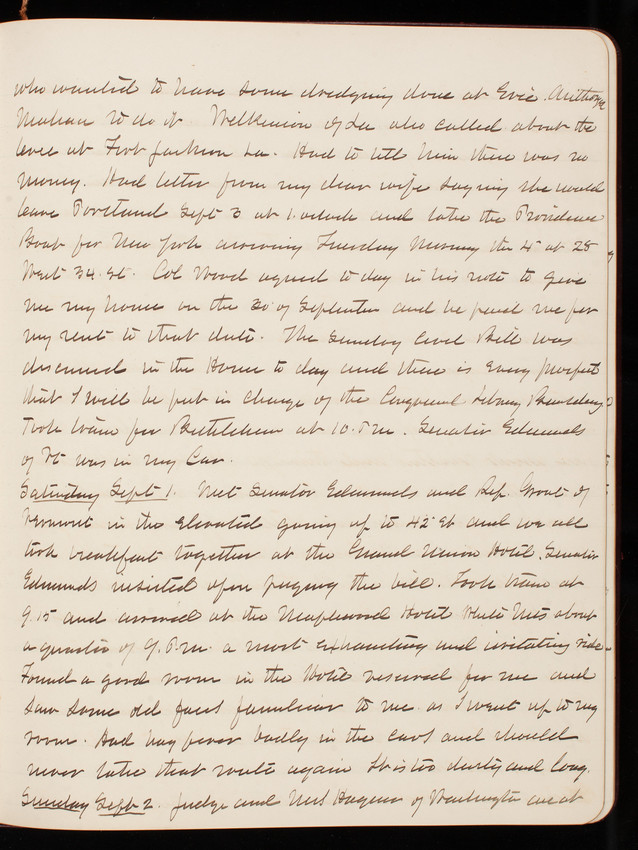 who wanted to have some dredging done at Erie. Authorize
Mahan to do it Wilkinson of La also called about the
levee at Fort Jackson La. Had to tell him there was no
money. Had letter from my dear wife saying she would
leave Portland Sept 3 at 1. oclock and take the Providence
Boat for New York arriving Tuesday Morning the 4 at 28
West 34. St. Col Wood agreed to day in his note to give
me my house on the 30 of September and he paid me for
my rent to that date. The Sunday Civil Bill was
discussed in the House to day and there is every prospect
that I will be put in charge of the Congressnl Library Building
Took train for Bethlehem at 10. P.m. Senator Edmunds
of Vt was in my Car.
Saturday Sept 1. Met Senator Edmunds and Rep. Grout of
Vermont in the Elevated going up to 42 St and we all
took breakfast together at the Grand Union Hotel. Senator
Edmunds insisted upon paying the bill. Took train at
9.15 and arrived at the Maplewood Hotel White Mts about
a quarter of 9. P.m. a most exhausting and irritating ride
Found a good room in the Hotel reserved for me and
saw some old faces familiar to me as I went up to my
room. Had hay fever badly in the cars and should
never take that route again It is too dusty and long.
Sunday Sept 2. Judge and Mrs Hagner of Washington are at